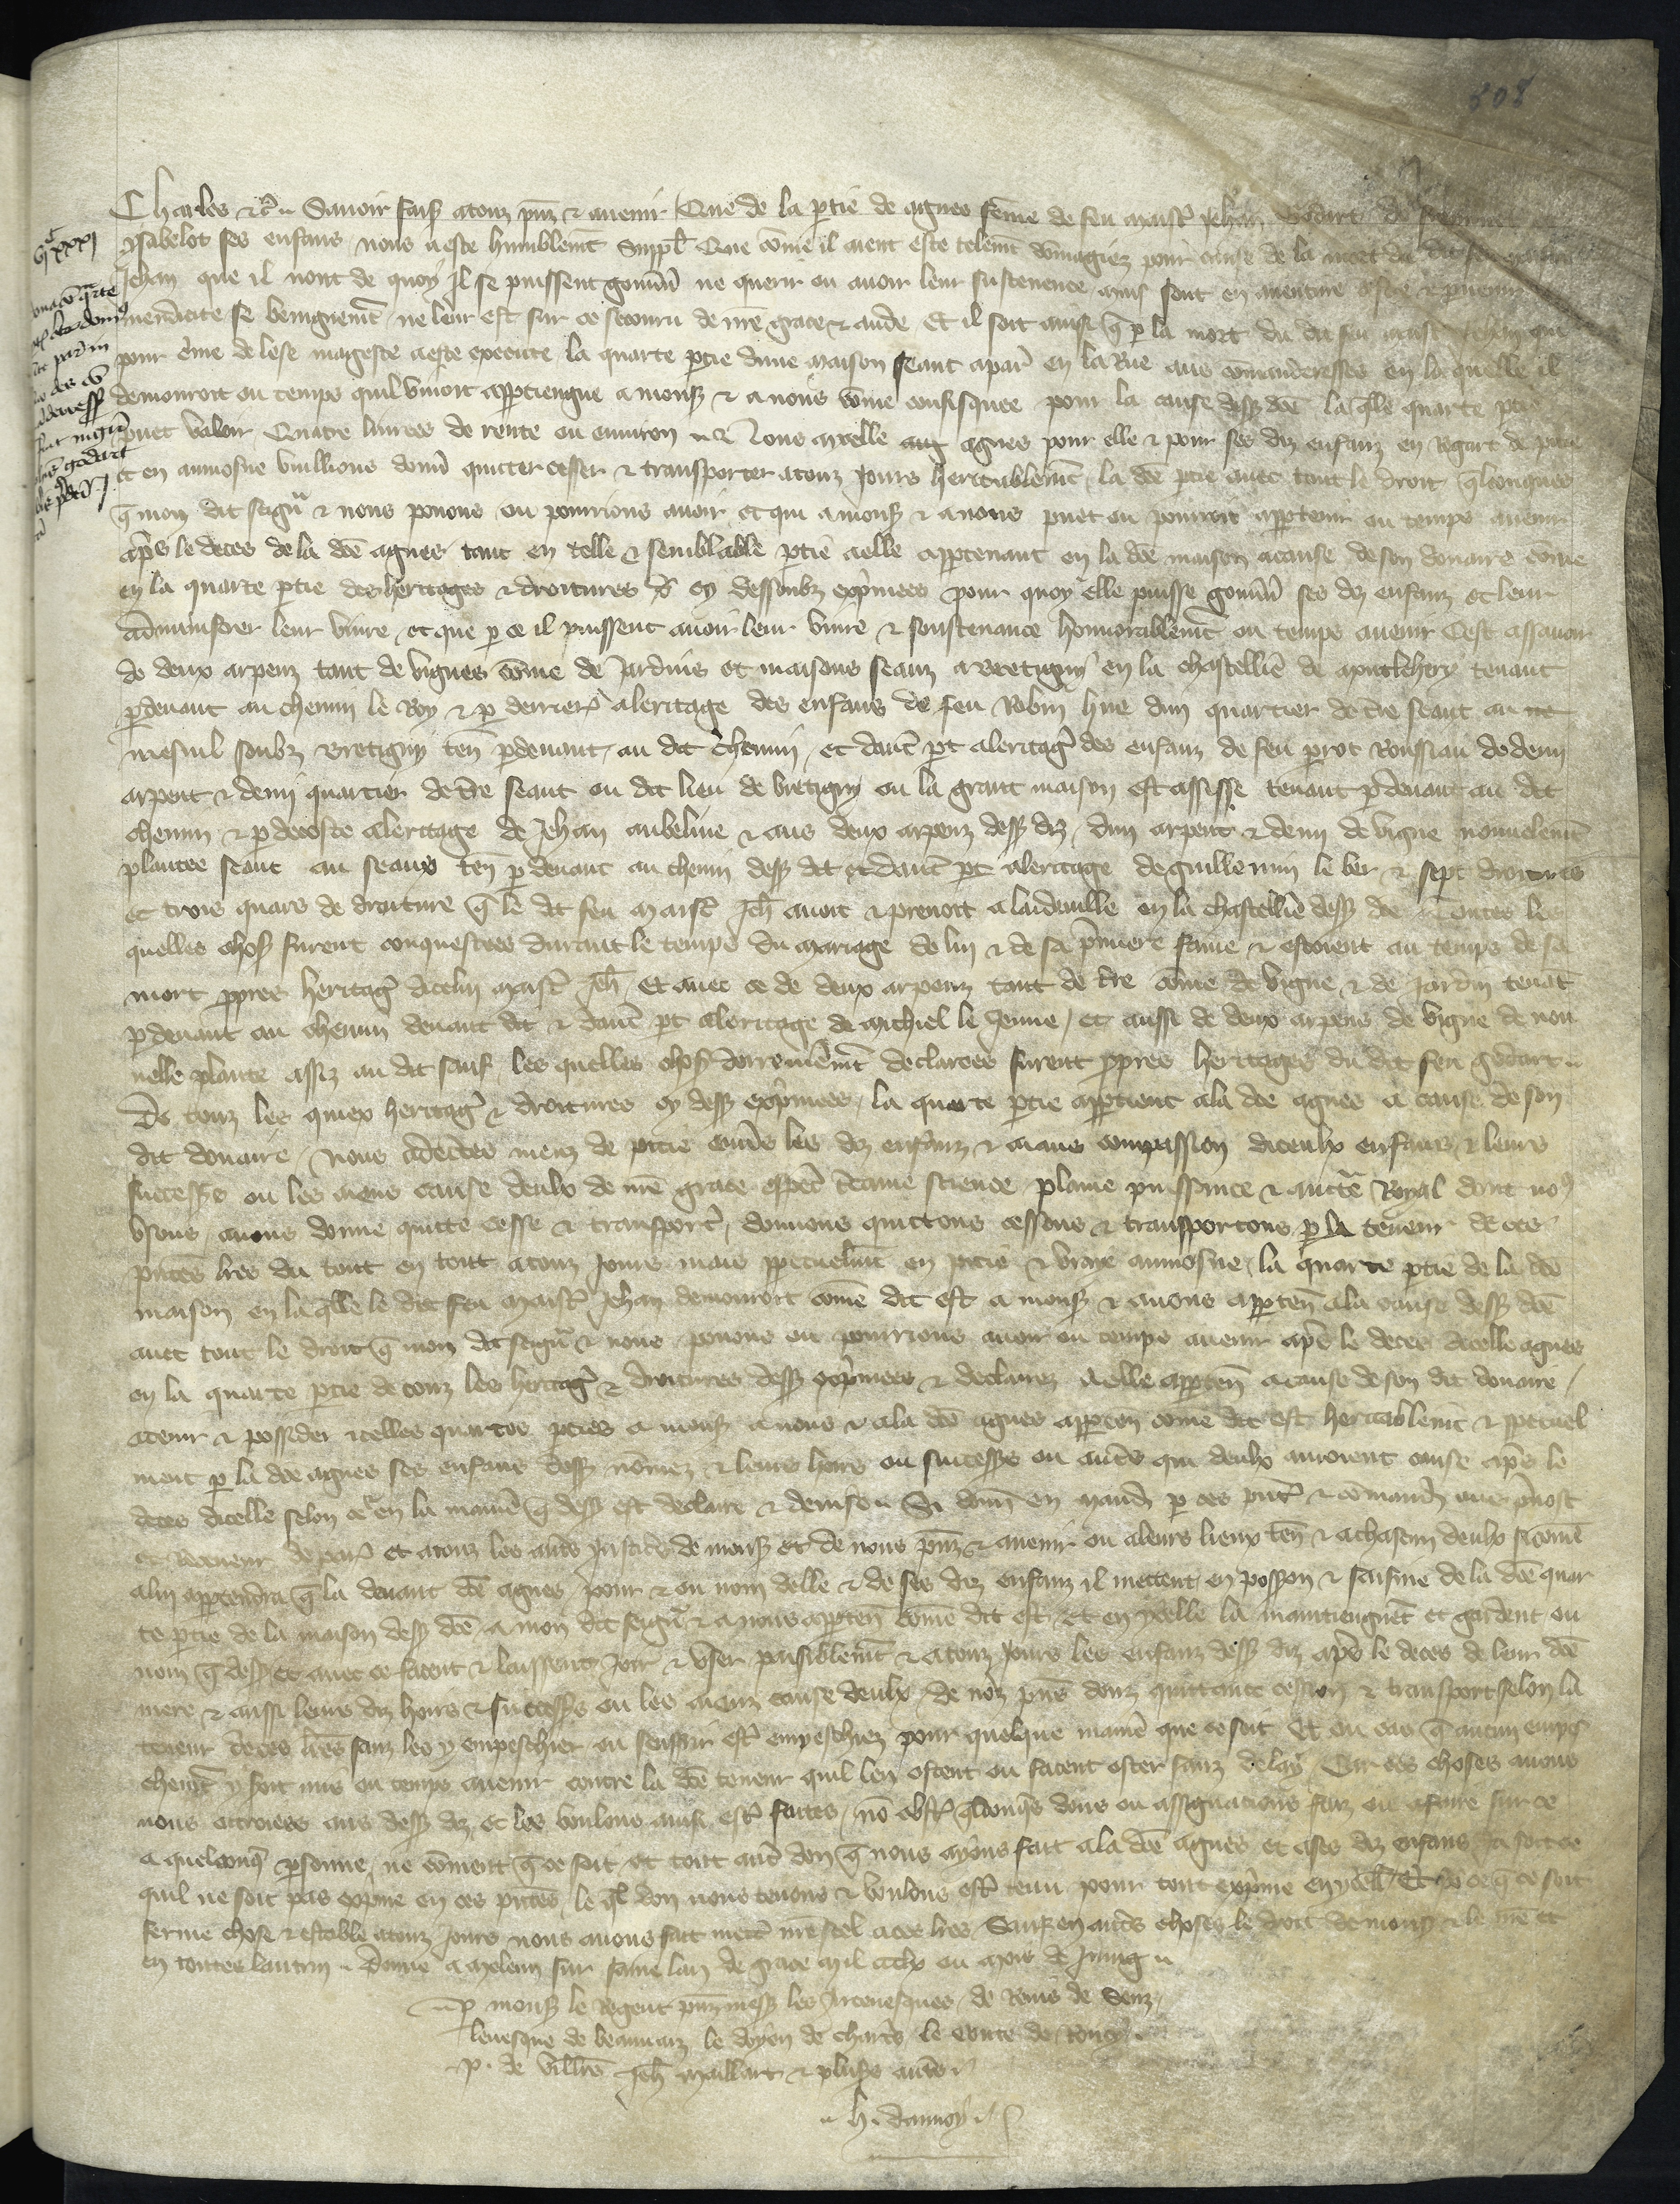 508
Charles etc. Savoir faisons a touz pnz et avenir Que de la ptie de agnes feme de feu maistre Jehan Godart de
ysabelot ses enfans nous a este humblemt suppl Que come il aient este telemt domagiez pour cause de la mort du dit feu maistre
Jehan que il nont de quoy il se puissent gouvner ne querir ou avoir leur sustenence ains sont en aventure destre
mendicite se benignemt ne leur est sur ce secouru de nre grace et aide Et il soit ainsi q p la mort du dit feu maistre Jehan qui
pour cime de lese mageste a este execute la quarte ptie dune maison seant a paris en la Rue aus comanderesses en la quelle il
demouroit ou temps quil vivoit apptiengne a mons et a nous come confisquee pour la cause dess dce la qlle quarte ptie
puet valoir Quatre livrees de rente ou environ Nous a ycelle agnes pour elle et pour ses diz enfanz en Regart de pitie
et en aumosne vuillions donner quitter cesser et transporter a touz Jours heritablemt la dce ptie avec tout le droit qlconques
q mon dit seigneur et nous povons ou pourrions avoir et qui a mons et a nous puet ou pourroit appartenir ou temps avenir
apres le deces de la dce agnes tant en telle et semblable ptie a elle appartenant en la dce maison a cause de son douaire come
en la quarte ptie des heritages et droitures cy dessoubz exprimees pour quoy elle puisse gouvner ses diz enfanz et leur
administrer leur vivre et que p ce il puissent avoir leur vivre et soustenance honnorablemt ou temps avenir Cest assavoir
de deux arpenz tant de vignes come de Jardins et maisons seanz a Bretigny en la chastellie de montlehery tenant
p devant au chemin le Roy et p derriere a leritage des enfans de feu Robin hue dun quartier de tre seant au
mesnil soubz Bretigny ten p devant au dit chemin et dautre pt a leritage des enfanz de feu perrot Roussiau de demi
arpent et demi quartier de tre seant ou dit lieu de bretigny ou la grant maison est assise tenant p devant au dit
chemin et p de coste a leritage de Jehan aubeline et aus deux arpenz dess diz dun arpent et demi de vigne nouvelemt
plantee seant au seaus ten p devant au chemin dess dit et dautre pt a leritage de guillemin le ber et sept droitures
et trois quars de droiture q le dit feu maistre Jeh avoit et prenoit a laidauille en la chastellie dess dce Toutes les
quelles choses furent conquestees durant le temps du mariage de lui et de sa pmiere fame et estoient au temps de sa
mort propres heritages dicelui maistre Jeh Et avec ce de deux arpenz tant de tre come de vigne et de Jardin tenat
p devant au chemin devant dit et dautre pt a leritage de michiel le Jeune et aussi de deux arpens de vigne de nou
velle plante assiz au dit sauf les quelles choses derrenieremt declarees furent propres heritages du dit feu godart
De touz les quiex heritages et droitures cy dess exprimees la quarte ptie apptient a la dce agnes a cause de son
dit douaire Nous adecertes meuz de pitie envers les diz enfanz et aians compassion diceulx enfans et leurs
successeurs ou les aians cause deulx de nre grace especial certaine science plaine puissance et auctorite Royal dont nous
usons avons donne quitte cesse et transporte donnons quittons cessons et transportons p la teneur de ces
pntes lres du tout en tout a touz Jours mais ppetuelmt en pitie et vraye aumosne la quarte ptie de la dce
maison en la qlle le dit feu maistre Jehan demouroit come dit est a mons et a nous apparten a la cause dess dce
avec tout le droit q mon dit seigneur et nous povons ou pourrions avoir ou temps avenir apres le deces dicelle agnes
en la quarte ptie de touz les heritages et droitures dess exprimees et declarez a elle apparten a cause de son dit douaire
a tenir et posseder icelles quartes pties a mons a nous et a la dce agnes apparten come dit est heritablemt et ppetuel
ment p la dce agnes ses enfans dess nomez et leurs hoirs ou successeurs ou autres qui deulx auroient cause apres le
deces dicelle selon ce en la maniere q dess est declaire et devise Si donn en mandement p ces pntes et comandons aus prevost
et Receveur de paris et a touz les autres Justiciers de mons et de nous pnz et avenir ou a leurs lieux ten et a chascun deulx si come
a lui appartendra q la devant dce agnes pour et ou nom delle et de ses diz enfanz il mettent en possession et saisine de la dce quar
te ptie de la maison dess dce a mon dit seigneur et a nous apparten come dit est et en ycelle la maintiengnent et gardent ou
nom q dess et avec ce facent et laissent Joir et user paisiblemt et a touz Jours les enfanz dess diz apres le deces de leur dce
mere et aussi leurs diz hoirs et successeurs ou les aianz cause deulx de noz pns donz quittance cession et transport selon la
teneur de ces lres sanz les y empeschier ou souffrir estre empeschiez pour quelque maniere que ce soit Et ou cas q aucun empes
chemt y soit mis ou temps avenir contre la dce teneur quil len ostent ou facent oster sanz delay Car ces choses avons
nous ottroiees aus dess diz et les voulons ainsi estre faites no obstant qlconqs dons ou assignacions faiz ou a faire sur ce
a quelconq psonne ne coment q ce soit et tout autre don q nous ayons fait a la dce agnes et a ses diz enfans Ja soit ce
quil ne soit pas exprime en ces pntes le ql don nous tenons et voulons estre tenu pour tout exprime en ycelles Et pour ce q ce soit
ferme chose et estable a touz Jours nous avons fait mettre nre scel a ces lres Sauf en autres choses le droit de mons et le nre et
en toutes lautruy Donne a meleun sur saine lan de grace mil ccclx ou mois de Juing
p mons le Regent pnz mess les Arcevesques de Reins de Senz
levesque de beauvaiz le doyen de chartres le conte de Roucy
P. de villers Jeh maillart et plusrs autres
h. dannoy